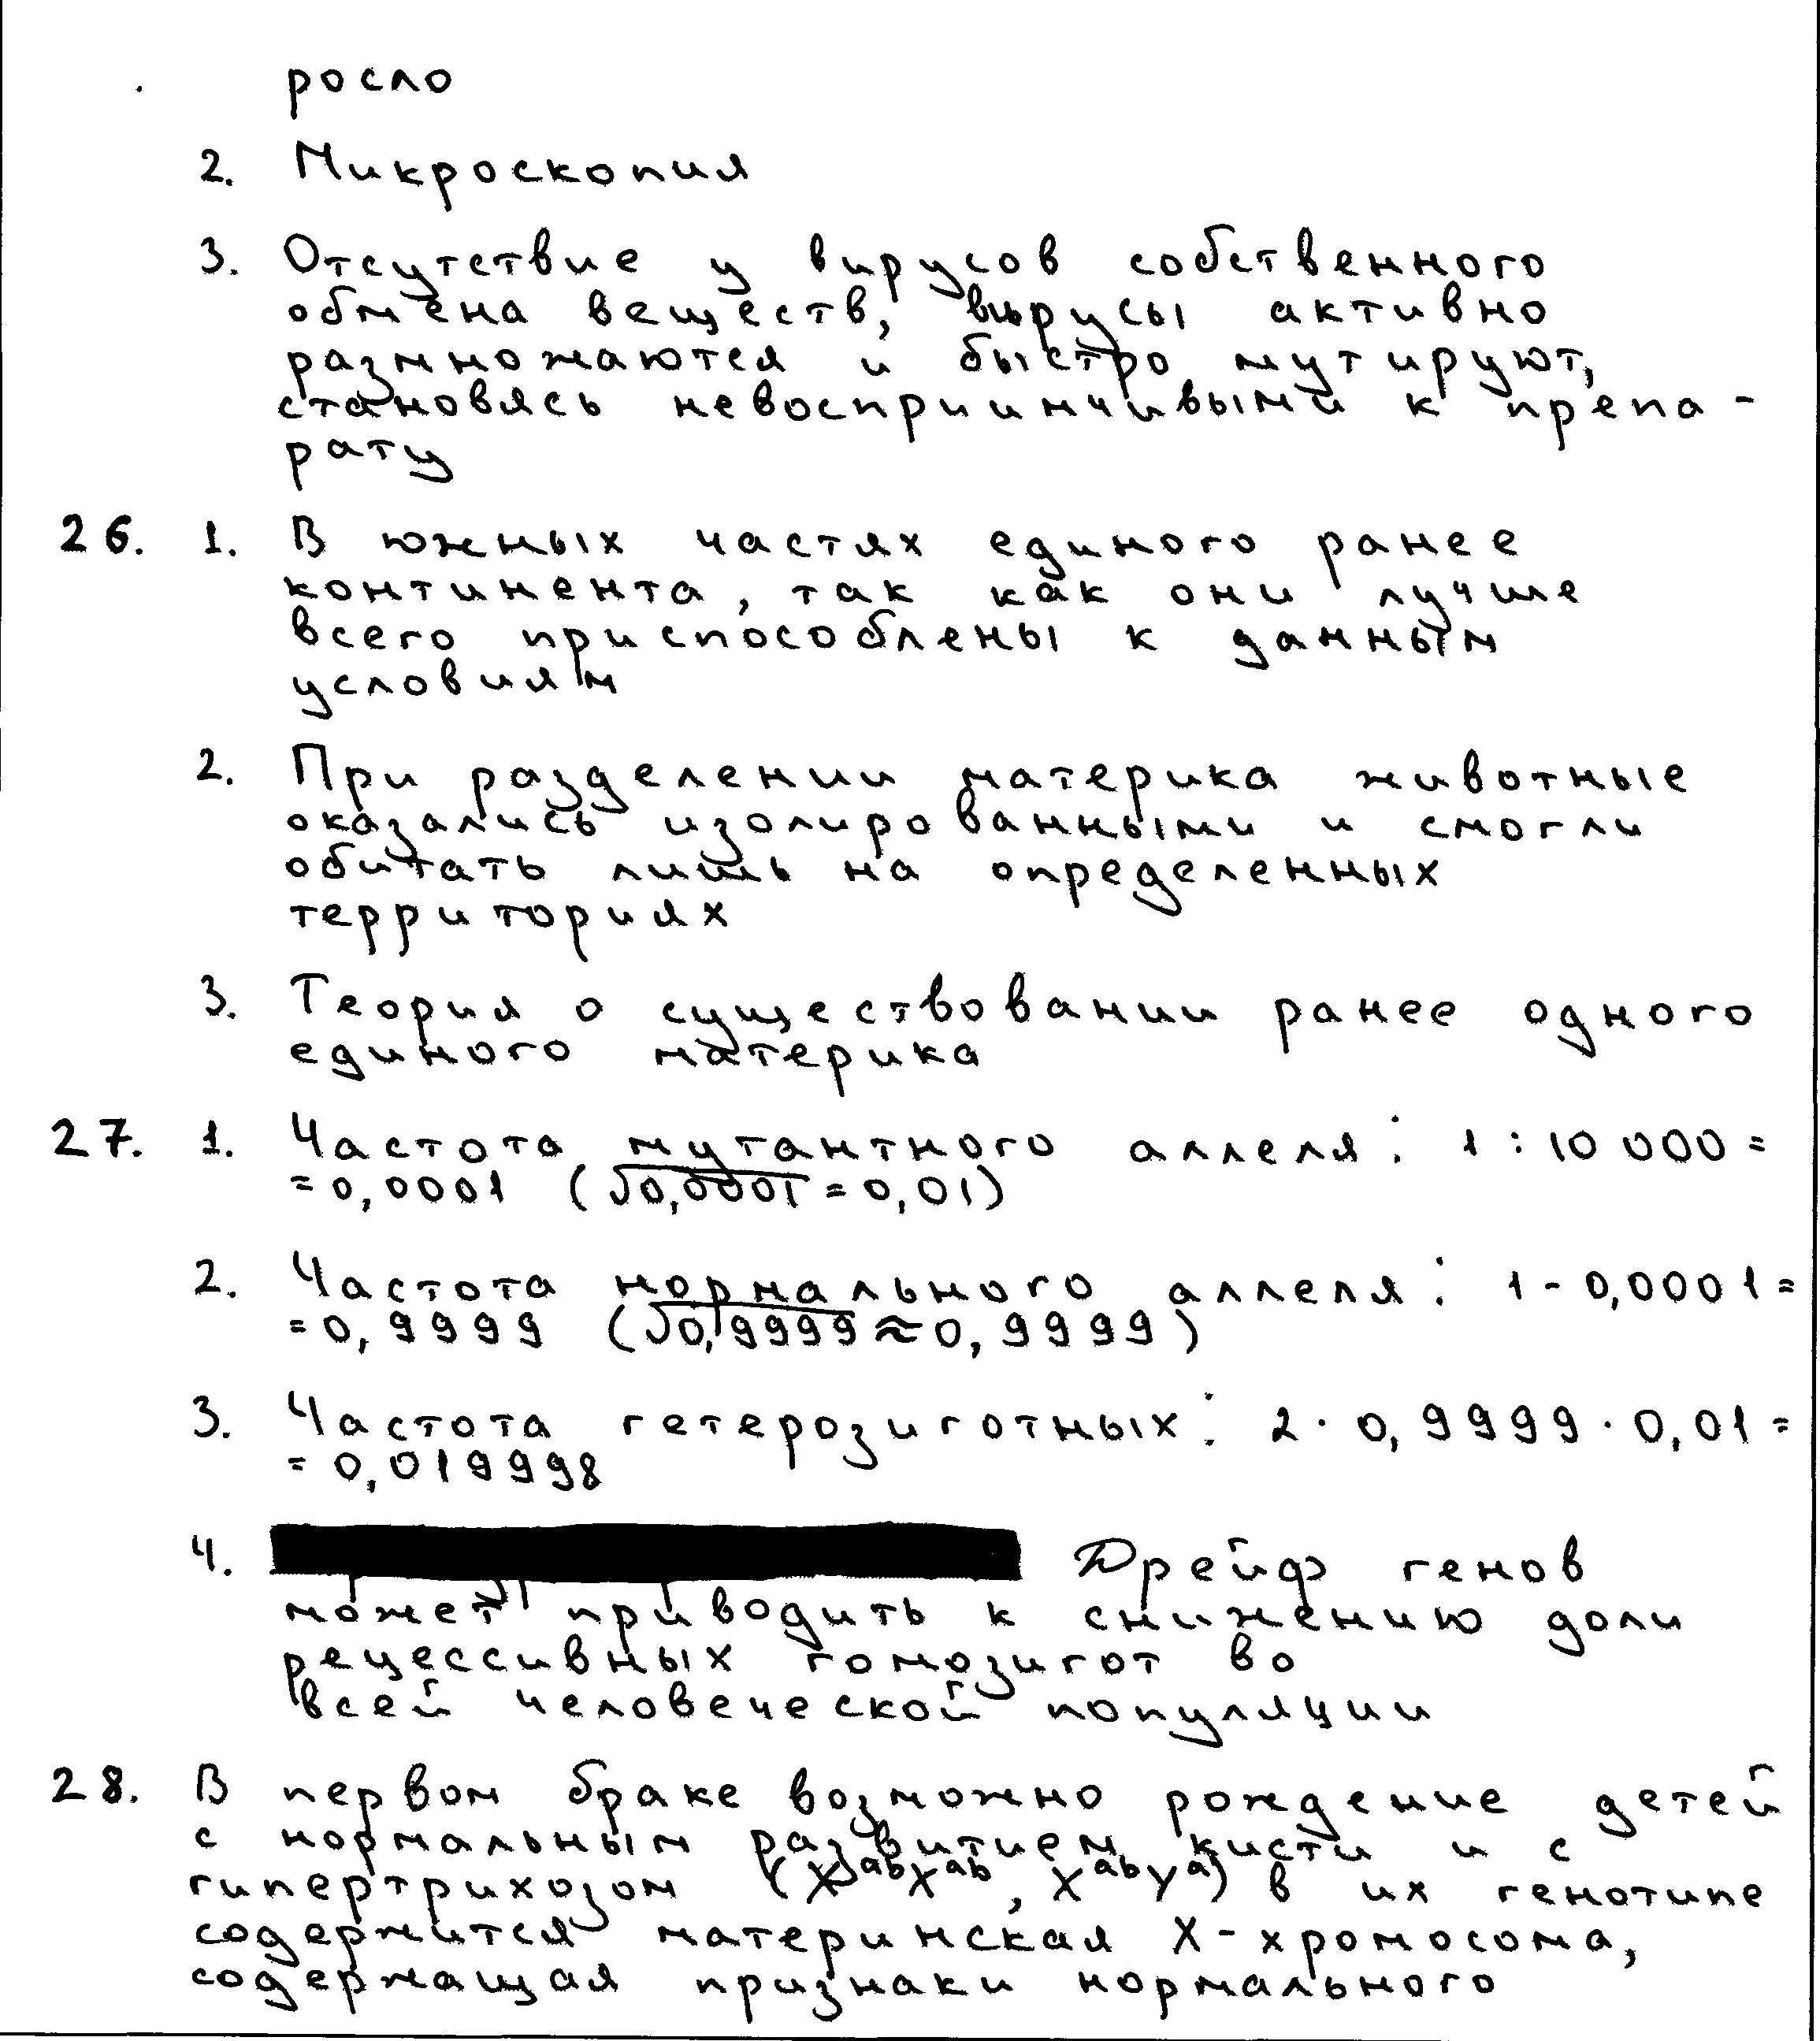 росло
2. Микроскопия
3. Отсутствие у вирусов собственного
обмена веществ, вирусы активно
размножаются и быстро мутируют,
становясь невосприимчивыми к препа-
рату
26. 1. В южных частях единого ранее
континента, так как они лучше
всего приспособлены к данным
условиям
2. При разделении материка животные
оказались изолированными и смогли
обитать лишь на определенных
территориях
3. Теория о существовании ранее одного
единого материка
27. 1. Частота мутантного аллеля: 1 : 10 000 =
= 0,0001 (√0,0001 = 0,01)
2. Частота нормального аллеля: 1 - 0,0001 =
= 0,9999 (√0,9999 ≈ 0,9999)
3. Частота гетерозиготных: 2 · 0,9999 · 0,01 =
= 0,019998
4. Дрейф генов
может приводить к снижению доли
рецессивных гомозигот во
всей человеческой популяции
28. В первом браке возможно рождение детей
с нормальным развитием кисти и с
гипертрихозом (XᵃᵇXᵃᵇ, XᵃᵇYᵃ) в их генотипе
содержится материнская X-хромосома,
содержащая признаки нормального